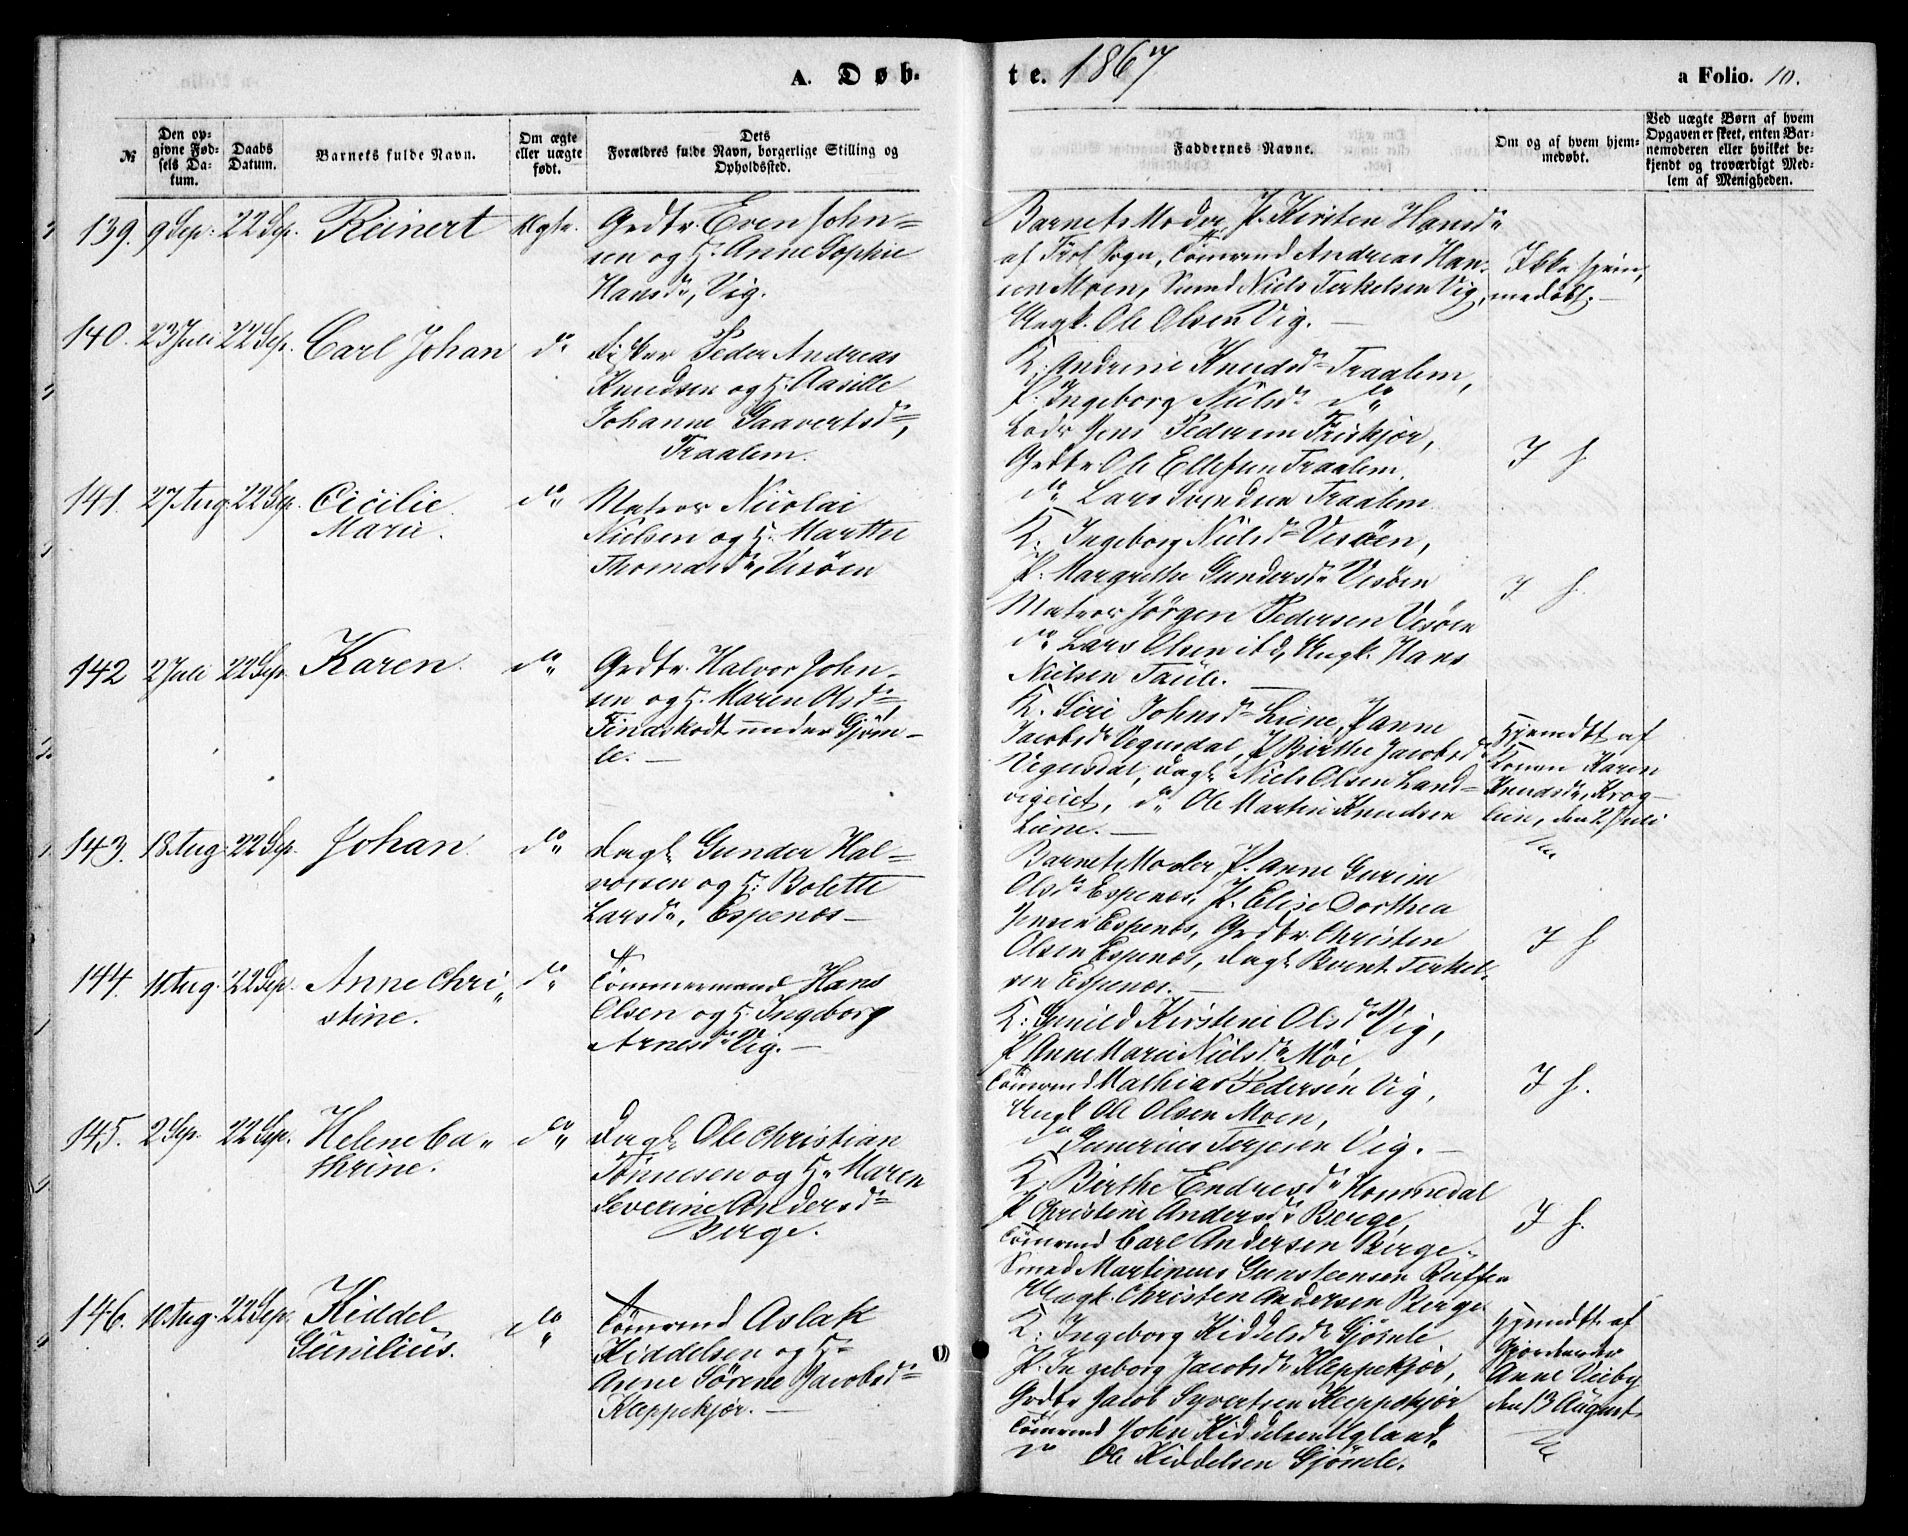 A. Døb-
te. 1867
a Folio. 10.
№
Den op-
givne Fød-
sels Da-
tum.
Daabs
Datum.
Barnets fulde Navn.
Om ægte
eller uægte
født.
Dets
Forældres fulde Navn, borgerlige Stilling og
Opholdssted.
Faddernes Navne.
Om og af hvem hjem-
medøbt.
Ved uægte Børn af hvem
Opgaven er skeet, enten Bar-
nemoderen eller hvilket be-
kjendt og troværdigt Med-
lem af Menigheden.
139. 9 Sep. 22 Sep. Reinert Ægte. Grdbr. Even John-
sen og H. Anne Sophie
Hansdr, Vig.
Barnets Moder, P. Kirsten Hansdr
af Frol. Sogn, Tømrmd Andreas Han-
sen Moen, Smed Niels Terkelsen Vig,
Ungk. Ole Olsen Vig. —
Ikke hjem-
medøbt. —
140. 23 Juli 22 Sep. Carl Johan do Fisker Peder Andreas
Knudsen og H. Aasille
Johanne Gaavertsdr,
Traalem.
K. Andrine Knudsdr Traalem,
P. Ingeborg Nielsdr do
Lods Jens Pedersen Friskjør,
Grdbr Ole Ellefsen Traalem.
do Lars Svendsen Traalem
I h
141. 27 Aug. 22 Sep. Cicilie
Marie.
do Matros Nicolai
Nielsen og H. Marthe
Thomasdr, Vesöen
K. Ingeborg Nielsdr Vesöen,
P. Margrethe Gundersdr Vesöen
Matros Jörgen Pedersen Vesöen
do Lars Olsen ibd, Ungk. Hans
Nielsen
I h.
142 2 Juli 22 Sep. Karen. do Grdbr. Halvor John-
sen og H. Maren Olsdr,
under Gjöm-
le. —
K. Siri Johnsdr Liene, P. Anne
Jacobsdr Vegusdal, P. Birthe Jacobsdr
Vegusdal, Dagl. Niels Olsen Land-
vigeiet, do Ole Martin Knudsen
Liene. —
Hjemdbt af
Konen Karen
Knudsdr, Krog-
lien, den 2 Juli
143. 18 Aug. 22 Sep. Johan do Dagl. Gunder Hal-
vorsen og H. Bolette
Larsdr, Espenæs —
Barnets Moder, P. Anne Gurine
Olsdr Espenæs, P. Elise Dorthea
Jensen Espenæs, Grdbr. Christen
Olsen Espenæs, Dagl. Berent Terkel-
sen Espenæs. —
I h
144. 11 Aug. 22 Sep. Anne Chri-
stine.
do Tömmermand Hans
Olsen og H. Ingeborg
Arnesdr Vig. —
K. Gunild Kirstine Olsdr Vig,
P. Anne Marie Nielsdr Möi
Tömrmd Mathias Pedersen Vig,
Ungk. Ole Olsen Moen,
do Gunerius Terjesen Vig. —
I h.
145. 2 Sep. 22 Sep. Helene Ca-
thrine.
do Dagl. Ole Christian
Tönnesen og H. Maren
Severine Andersdr
Berge.
K. Birthe Endresdr Hommedal
P. Christine Andersdr Berge,
Tömrmd Carl Andersen Berge.
Smed Martinius Gunsteensen
Ungk. Christen Andersen Berge
I h.
146. 10 Aug. 22 Sep. Kiddel
Gunilius.
do Tömrmd Aslak
Kiddelsen og H.
Anne Sörene Jacobsdr
Kleppekjær. —
K. Ingeborg Kiddelsdr Gjömle
P. Ingeborg Jacobsdr Kleppekjær,
Grdbr Jacob Syvertsen Kleppekjær
Tömrmd John Kiddelsen Ugland,
do Ole Kiddelsen Gjömle.
Hjemdbt af
Gjordemoder
Anne Vieby
den 13 August